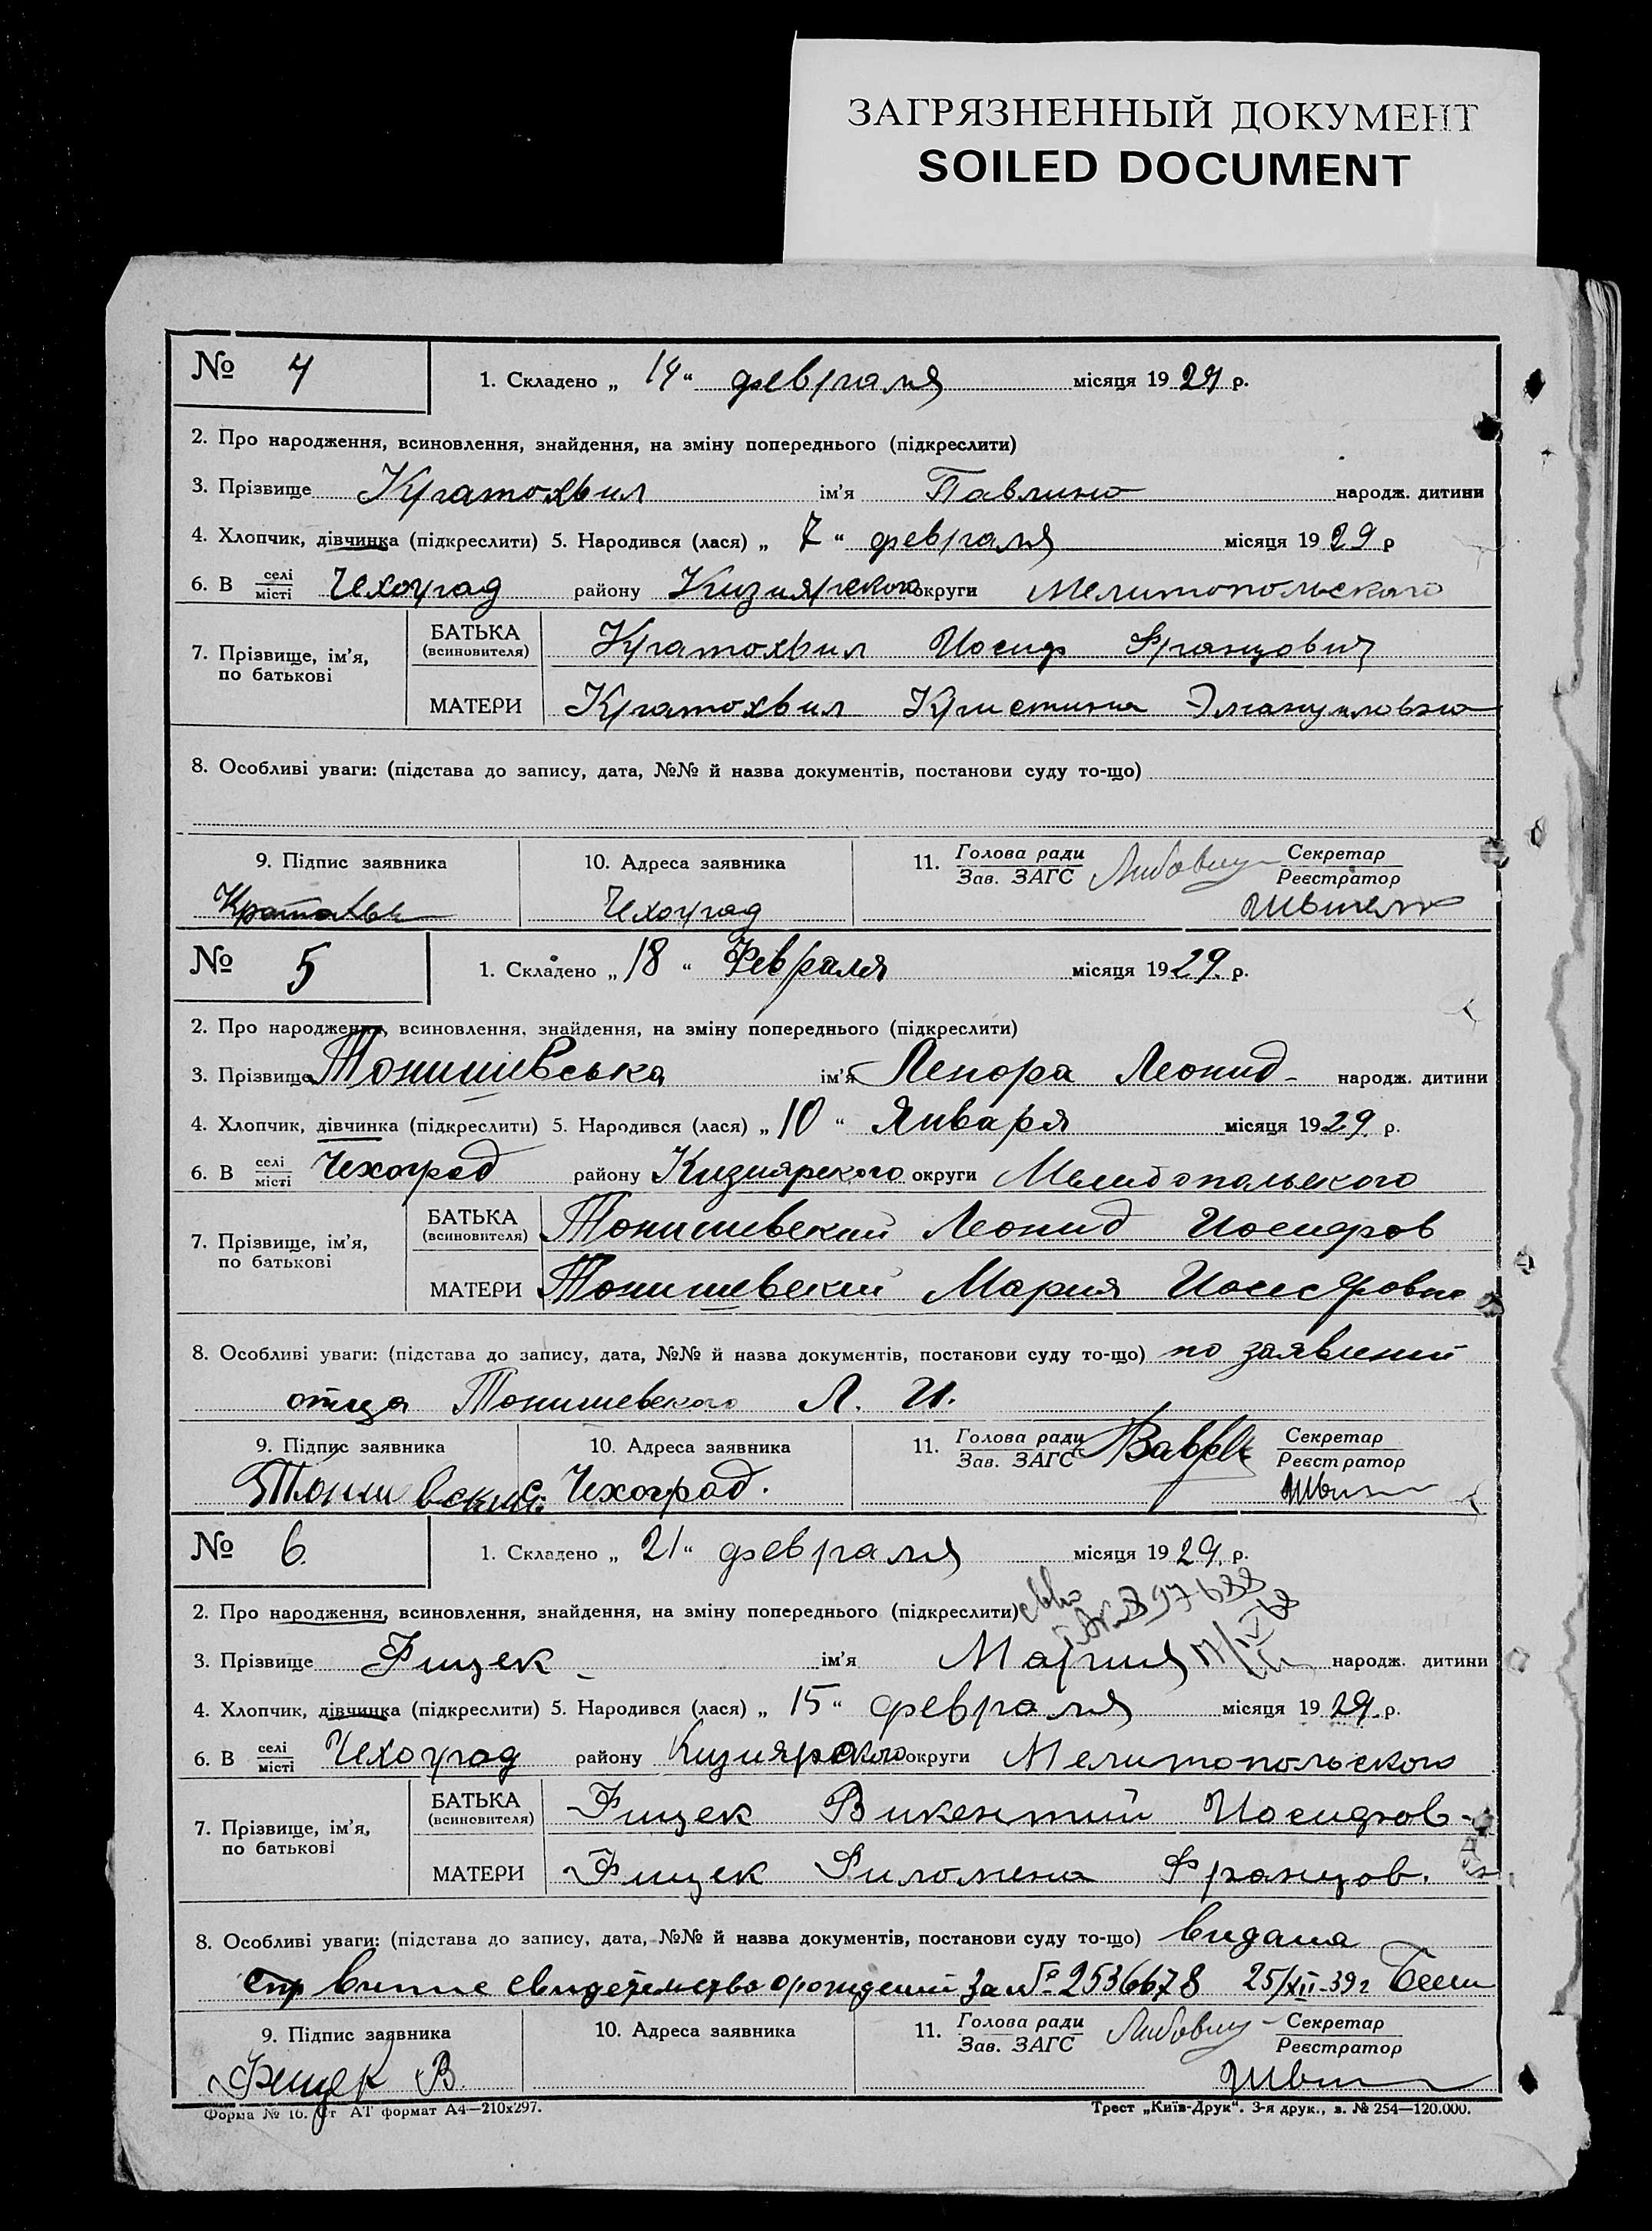 ЗАГРЯЗНЕННЫЙ ДОКУМЕНТ
SOILED DOCUMENT
№ 4 1. Складено „ 14 “ февраля місяця 19 29 р.
2. Про народження, всиновлення, знайдення, на зміну попереднього (підкреслити)
3. Прізвище Кратохвил ім'я Павлина народж. дитини
4. Хлопчик, дівчинка (підкреслити) 5. Народився (лася) „ 7 “ февраля місяця 19 29 р
6. В селі місті Чехоград району Кизиярского округи Мелитопольского
7. Прізвище, ім'я, по батькові БАТЬКА (всиновителя) Кратохвил Иосиф Францович
МАТЕРИ Кратохвил Кристина Эмануиловна
8. Особливі уваги: (підстава до запису, дата, №№ й назва документів, постанови суду то-що)
9. Підпис заявника 10. Адреса заявника 11. Голова ради Зав. ЗАГС Секретар Реєстратор
Чехоград
№ 5 1. Складено „ 18 “ Февраля місяця 19 29. р.
2. Про народження, всиновлення, знайдення, на зміну попереднього (підкреслити)
3. Прізвище Тонишевська ім'я Ленора Леонид- народж. дитини
4. Хлопчик, дівчинка (підкреслити) 5. Народився (лася) „ 10 “ Января місяця 19 29. р.
6. В селі місті Чехоград району Кизиярского округи Мелитопольского
7. Прізвище, ім'я, по батькові БАТЬКА (всиновителя) Тонишевский Леонид Иосифов
МАТЕРИ Тонишевский Мария Иосифовна
8. Особливі уваги: (підстава до запису, дата, №№ й назва документів, постанови суду то-що) по заявлений
отца Тонишевского Л. И.
9. Підпис заявника 10. Адреса заявника 11. Голова ради Зав. ЗАГС Секретар Реєстратор
Тонишевский Чехоград.
№ 6. 1. Складено „ 21 “ февраля місяця 19 29. р.
2. Про народження, всиновлення, знайдення, на зміну попереднього (підкреслити)
3. Прізвище Фицек ім'я Мария народж. дитини
4. Хлопчик, дівчинка (підкреслити) 5. Народився (лася) „ 15 “ февраля місяця 19 29. р.
6. В селі місті Чехоград району Кизиярского округи Мелитопольского
7. Прізвище, ім'я, по батькові БАТЬКА (всиновителя) Фицек Викентий Иосифов-
МАТЕРИ Фицек Филомена Францов.
8. Особливі уваги: (підстава до запису, дата, №№ й назва документів, постанови суду то-що) видана
свидетельство о рождений за № 2536678 25/XII-39г
9. Підпис заявника 10. Адреса заявника 11. Голова ради Зав. ЗАГС Секретар Реєстратор
Фицек В.
Форма № 16. Ст АТ формат А4—210х297. Трест „Київ-Друк“. 3-я друк., з. № 254—120.000.